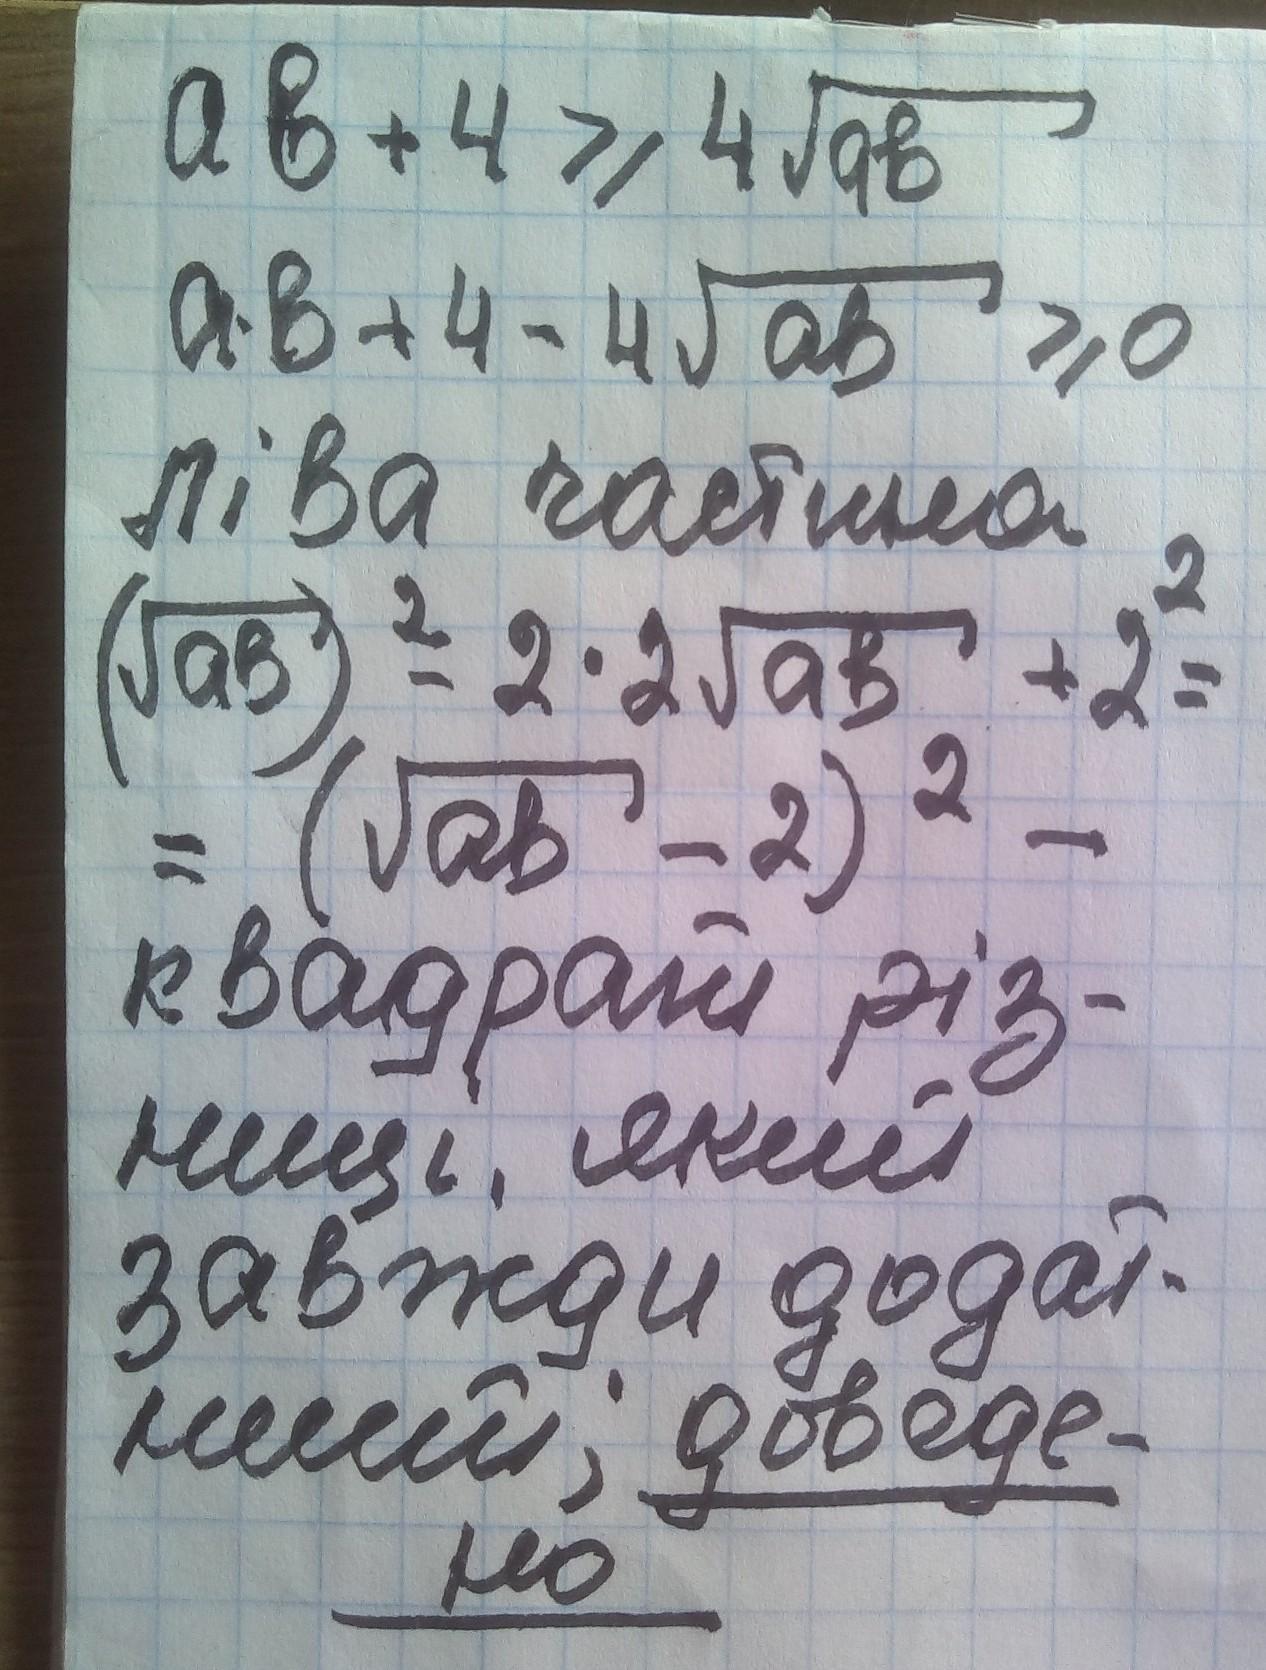 ав + 4 ⩾ 4√ав
а·в + 4 - 4√ав ⩾ 0
ліва частина
(√ав)² - 2·2√ав + 2² =
= (√ав - 2)² -
квадрат різ-
ниці, який
завжди додат-
ний; доведе-
но